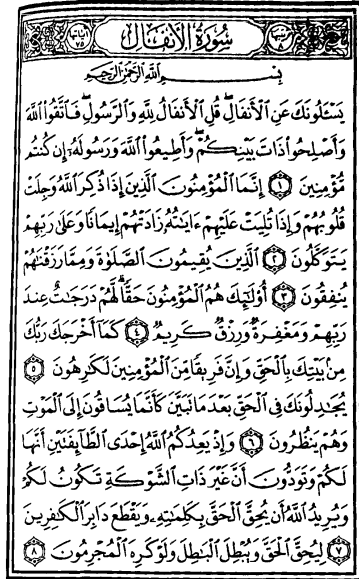 ترتيبها ٨
سُورَةُ الأَنفَالِ
آياتها ٧٥
بِسْمِ اللَّهِ الرَّحْمَٰنِ الرَّحِيمِ
يَسْـَٔلُونَكَ عَنِ الْأَنفَالِ ۖ قُلِ الْأَنفَالُ لِلَّهِ وَالرَّسُولِ ۖ فَاتَّقُوا۟ اللَّهَ
وَأَصْلِحُوا۟ ذَاتَ بَيْنِكُمْ ۖ وَأَطِيعُوا۟ اللَّهَ وَرَسُولَهُۥٓ إِن كُنتُم
مُّؤْمِنِينَ ١ إِنَّمَا الْمُؤْمِنُونَ الَّذِينَ إِذَا ذُكِرَ اللَّهُ وَجِلَتْ
قُلُوبُهُمْ وَإِذَا تُلِيَتْ عَلَيْهِمْ ءَايَٰتُهُۥ زَادَتْهُمْ إِيمَٰنًا وَعَلَىٰ رَبِّهِمْ
يَتَوَكَّلُونَ ٢ الَّذِينَ يُقِيمُونَ الصَّلَوٰةَ وَمِمَّا رَزَقْنَٰهُمْ
يُنفِقُونَ ٣ أُو۟لَٰٓئِكَ هُمُ الْمُؤْمِنُونَ حَقًّا ۚ لَّهُمْ دَرَجَٰتٌ عِندَ
رَبِّهِمْ وَمَغْفِرَةٌ وَرِزْقٌ كَرِيمٌ ٤ كَمَآ أَخْرَجَكَ رَبُّكَ
مِنۢ بَيْتِكَ بِالْحَقِّ وَإِنَّ فَرِيقًا مِّنَ الْمُؤْمِنِينَ لَكَٰرِهُونَ ٥
يُجَٰدِلُونَكَ فِي الْحَقِّ بَعْدَ مَا تَبَيَّنَ كَأَنَّمَا يُسَاقُونَ إِلَى الْمَوْتِ
وَهُمْ يَنظُرُونَ ٦ وَإِذْ يَعِدُكُمُ اللَّهُ إِحْدَى الطَّآئِفَتَيْنِ أَنَّهَا
لَكُمْ وَتَوَدُّونَ أَنَّ غَيْرَ ذَاتِ الشَّوْكَةِ تَكُونُ لَكُمْ
وَيُرِيدُ اللَّهُ أَن يُحِقَّ الْحَقَّ بِكَلِمَٰتِهِۦ وَيَقْطَعَ دَابِرَ الْكَٰفِرِينَ
٧ لِيُحِقَّ الْحَقَّ وَيُبْطِلَ الْبَٰطِلَ وَلَوْ كَرِهَ الْمُجْرِمُونَ ٨